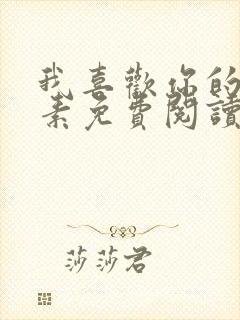 我喜歡你的
素免費閱讀
莎莎君